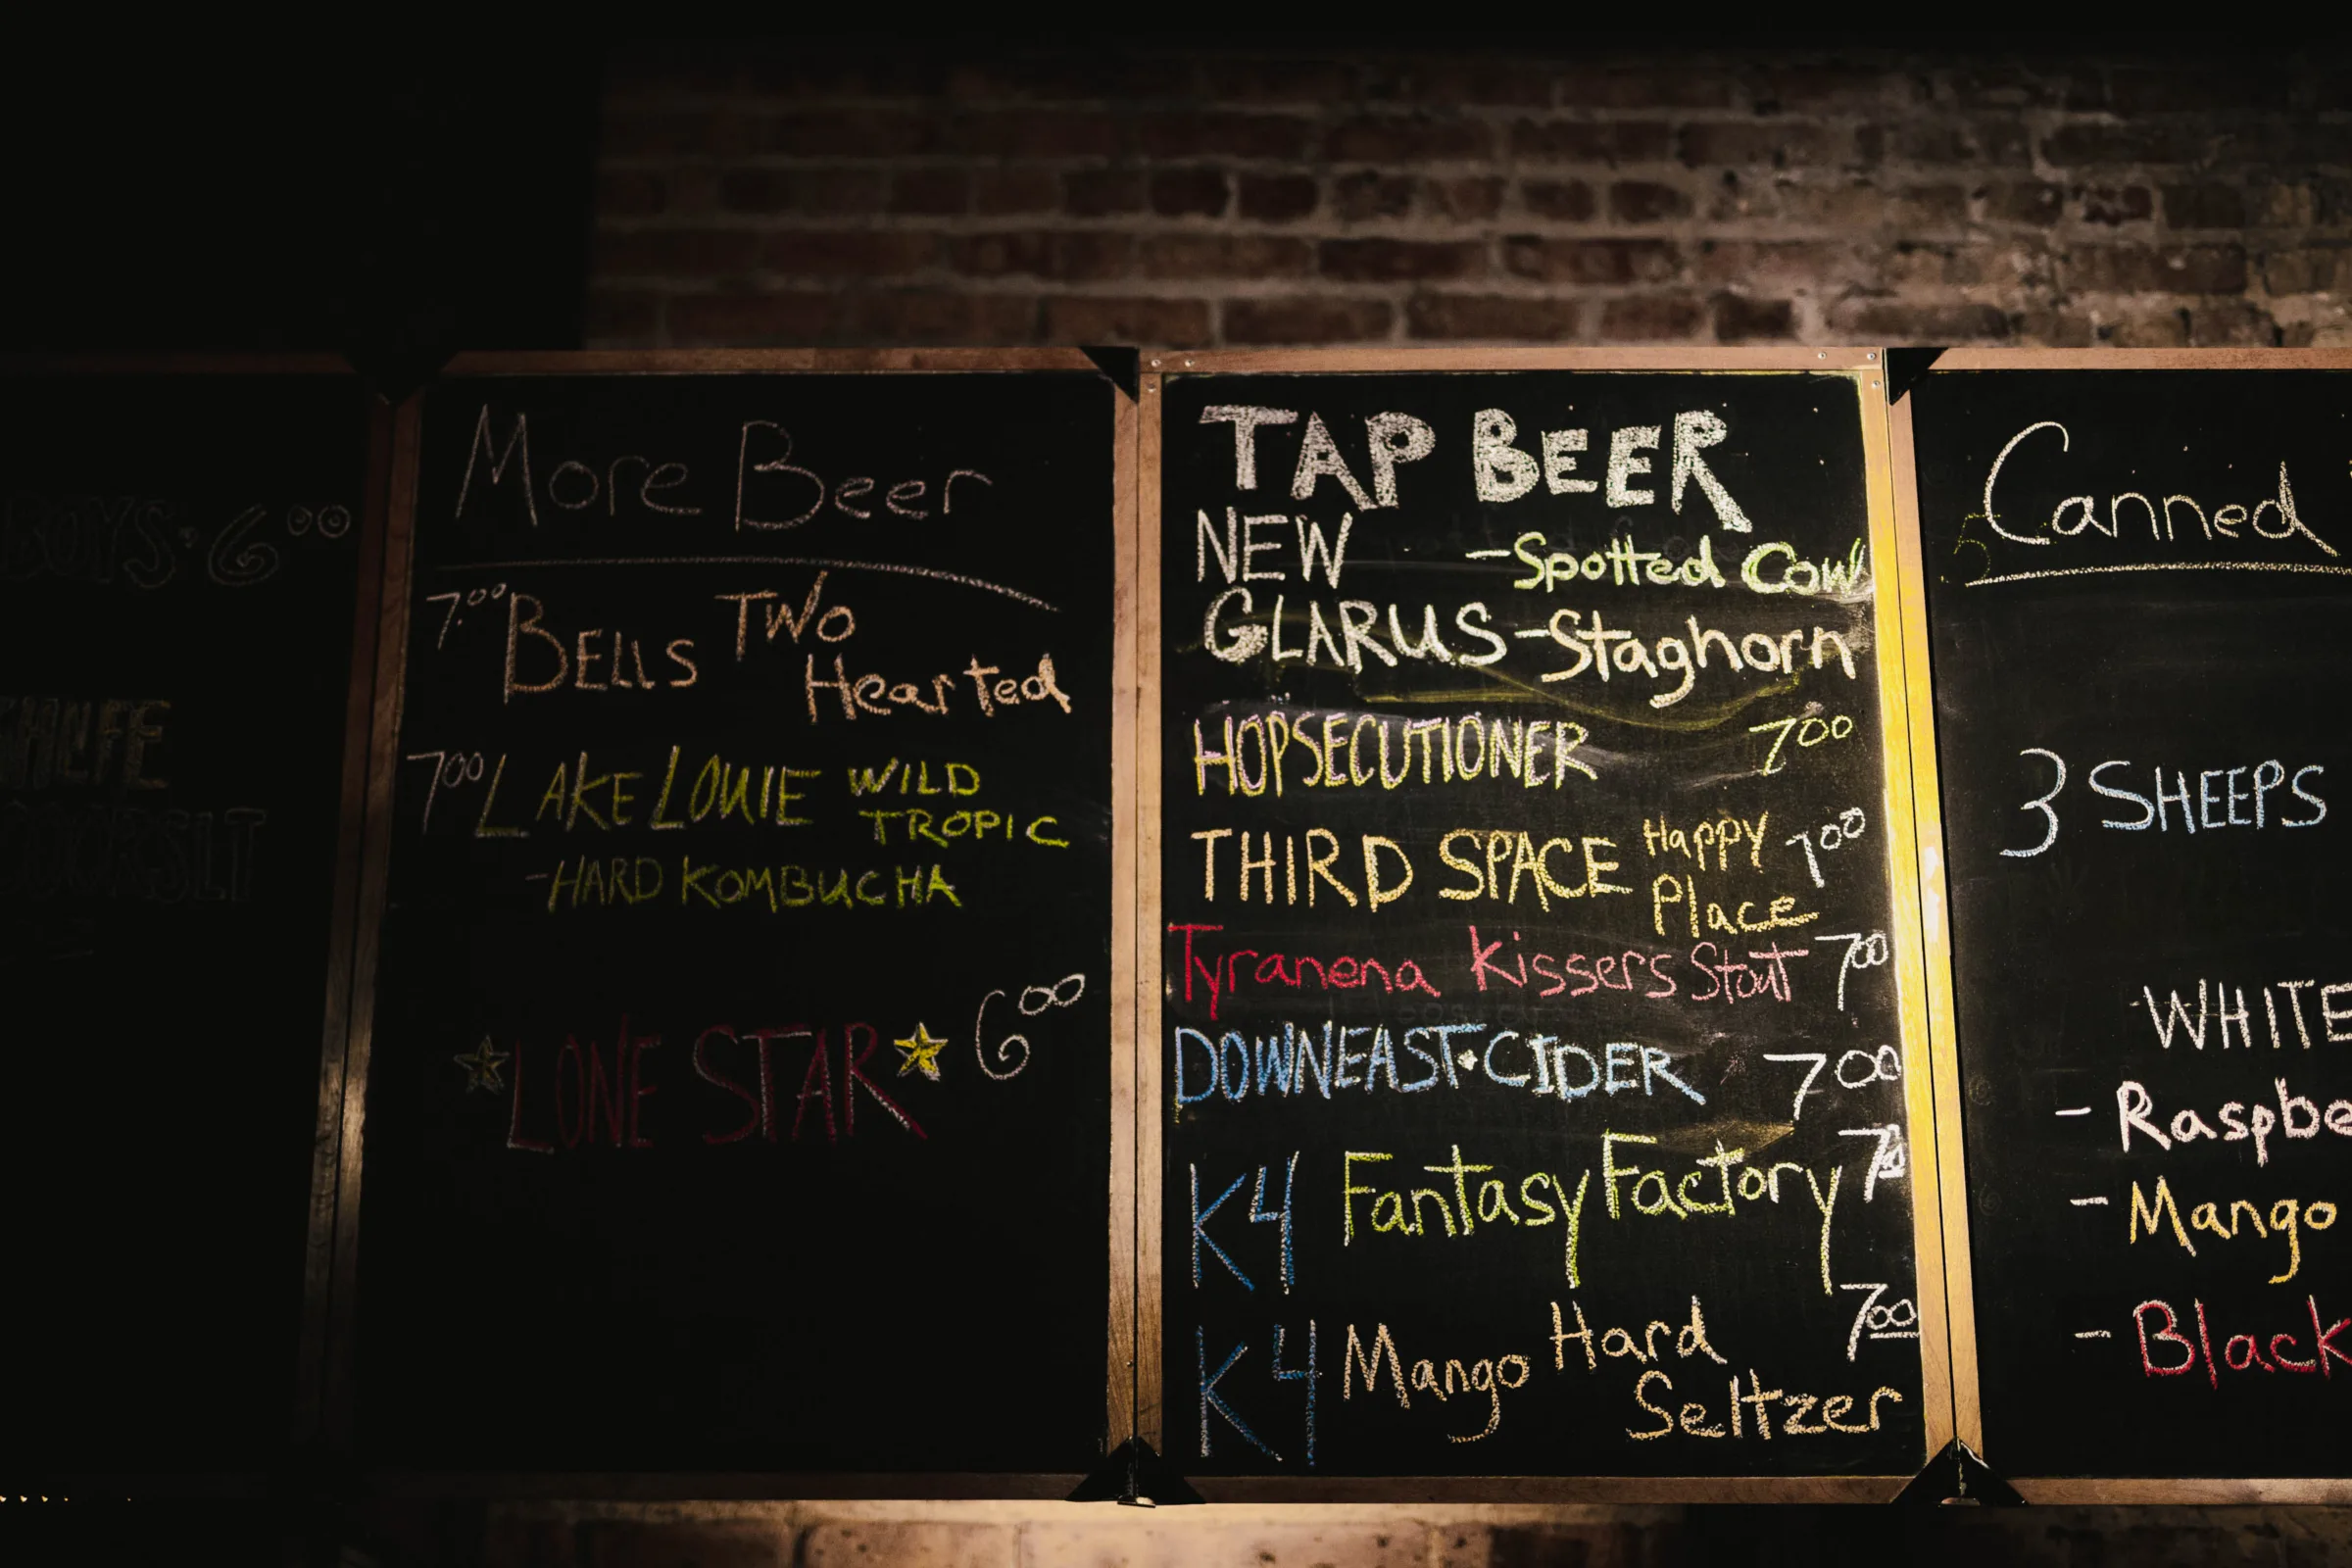 BOYS · 6⁰⁰
More Beer
7.⁰⁰ BELLS TWO
Hearted
7⁰⁰ LAKE LOUIE WILD
TROPIC
-HARD KOMBUCHA
LONE STAR 6⁰⁰
TAP BEER
NEW -Spotted Cow
GLARUS -Staghorn
HOPSECUTIONER 7⁰⁰
THIRD SPACE Happy 7⁰⁰
Place
Tyranena Kissers Stout 7⁰⁰
DOWNEAST·CIDER 7⁰⁰
K4 Fantasy Factory 7
K4 Mango Hard 7⁰⁰
Seltzer
Canned
3 SHEEPS
WHITE
- Raspbe
- Mango
- Black